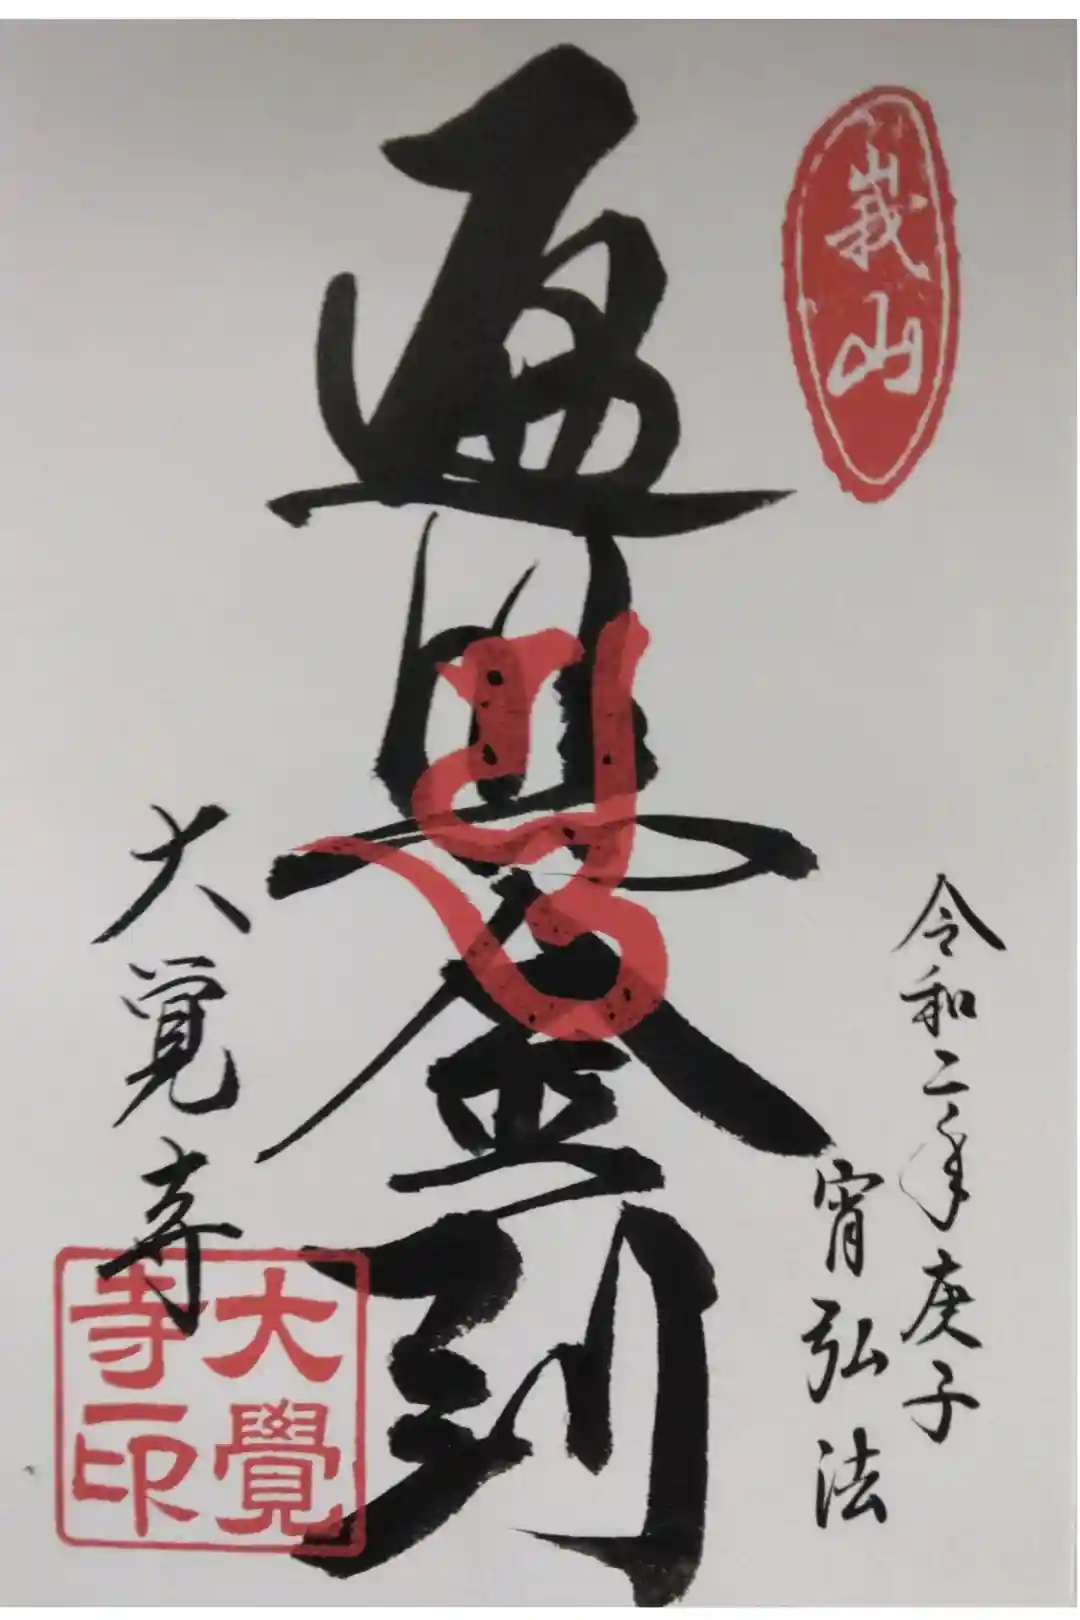 峩山
令和二年庚子
宵弘法
遍照金剛
大覚寺
大覺
寺印